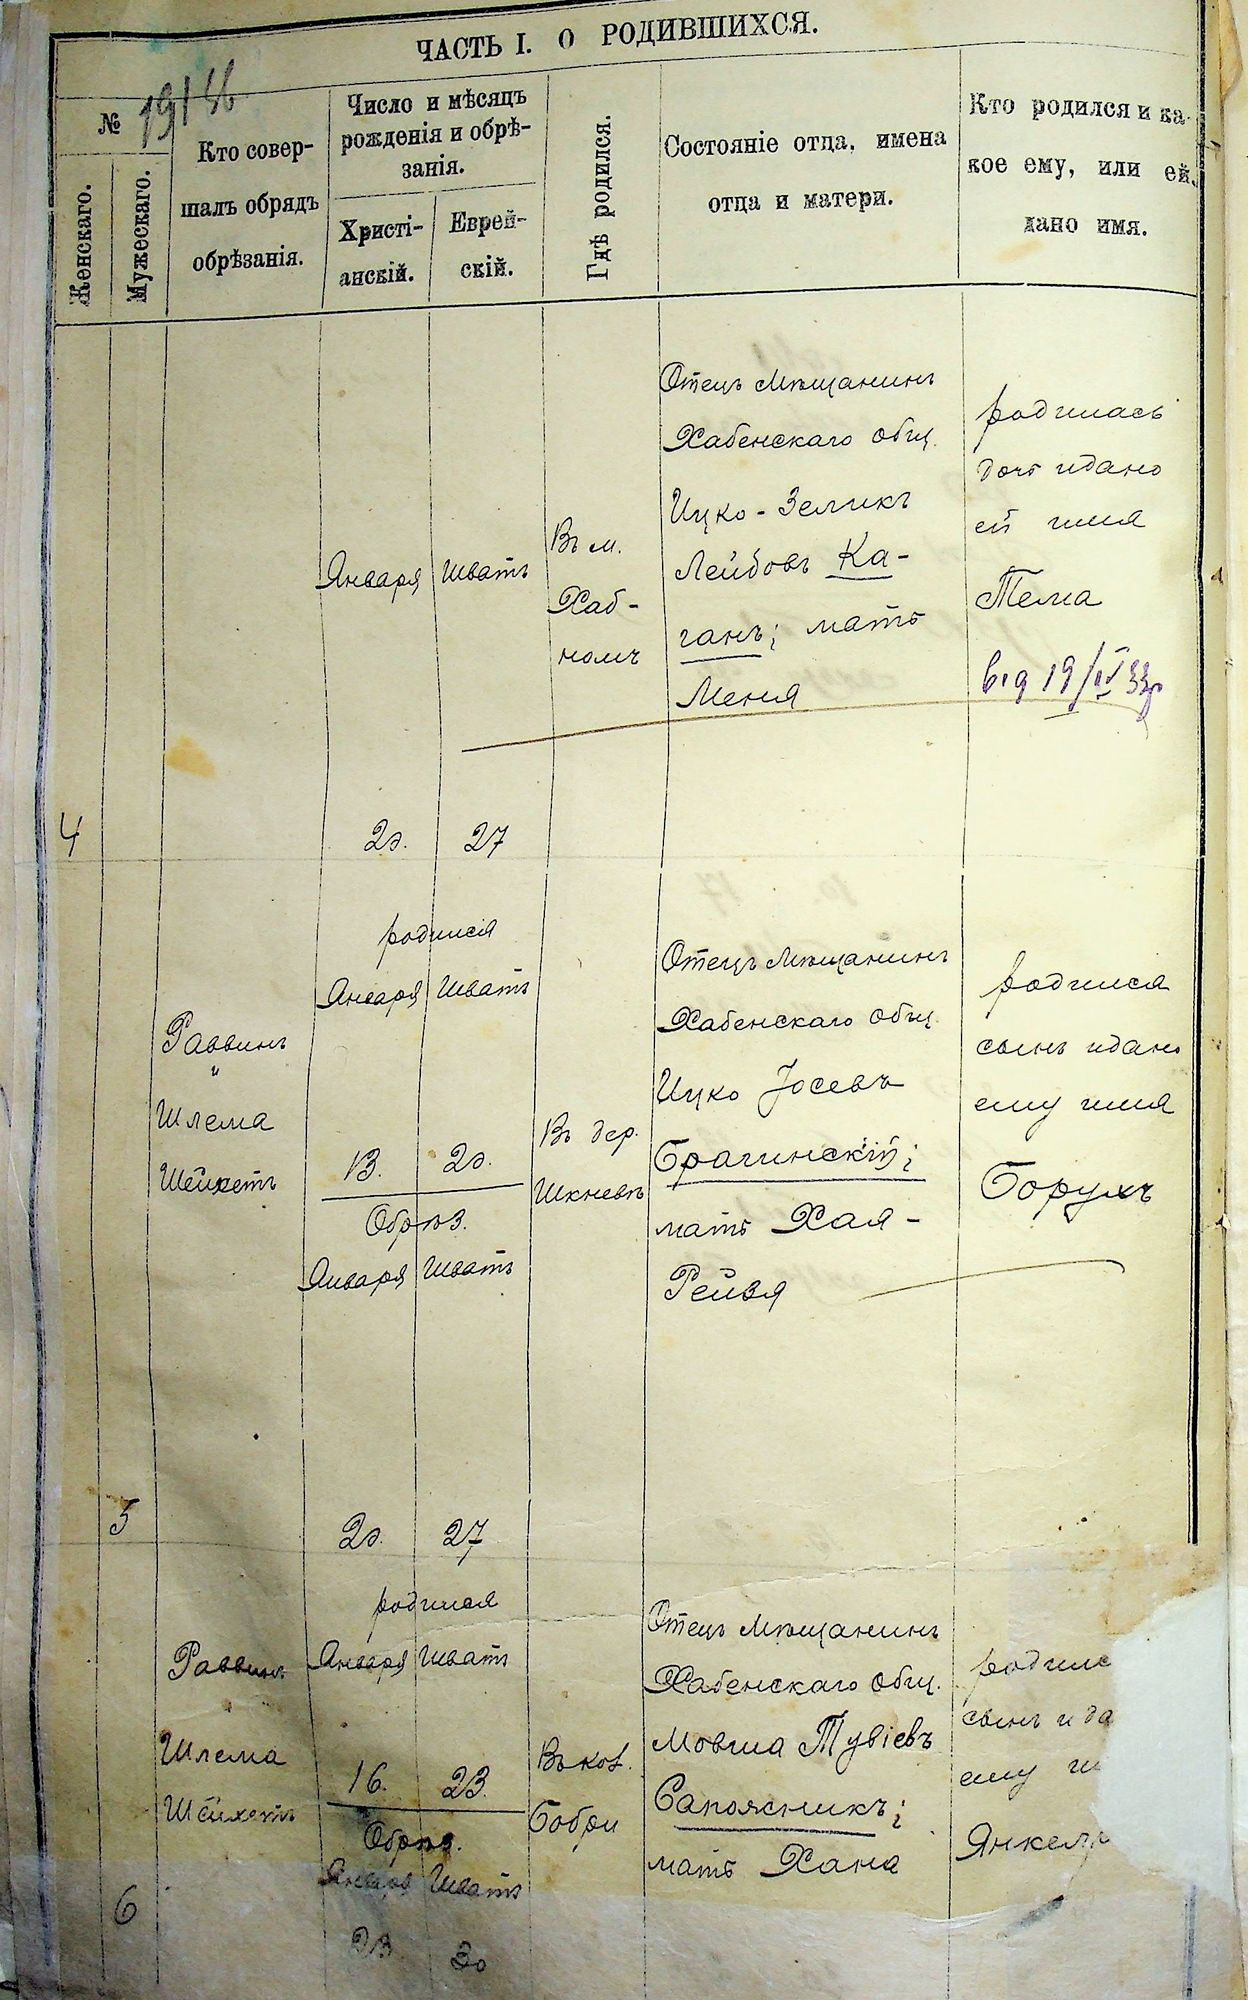 ЧАСТЬ I. О РОДИВШИХСЯ.
№
Женскаго.
Мужескаго.
Кто совер-
шалъ обрядъ
обрѣзанія.
Число и мѣсяцъ
рожденія и обрѣ-
занія.
Христі-
анскій.
Еврей-
скій.
Гдѣ родился.
Состояніе отца, имена
отца и матери.
Кто родился и ка-
кое ему, или ей,
дано имя.
4
Января
20.
Шватъ
27
Въ м.
Хаб-
номъ
Отецъ Мѣщанинъ
Хабенскаго общ.
Ицко-Зеликъ
Лейбовъ Ка-
ганъ; мать
Меня
родилась
дочь и дано
ей имя
Тема
від 19/IV 33р
5
Раввинъ
и
Шлема
Шейхетъ
родился
Января Шватъ
13. 20.
Обрѣз.
Января Шватъ
20. 27
Въ дер.
Шкневѣ
Отецъ Мѣщанинъ
Хабенскаго общ.
Ицко Іосевъ
Брагинскій;
мать Хая-
Рейзя
родился
сынъ и дано
ему имя
Борухъ
6
Раввинъ
Шлема
Шейхетъ
родился
Января Шватъ
16. 23.
Обрѣз.
Января Шватъ
23 30
Въ кол.
Бобри
Отецъ Мѣщанинъ
Хабенскаго общ.
Мовша Тувіевъ
Сапожникъ;
мать Хана
родилс
сынъ и да
ему и
Янкель